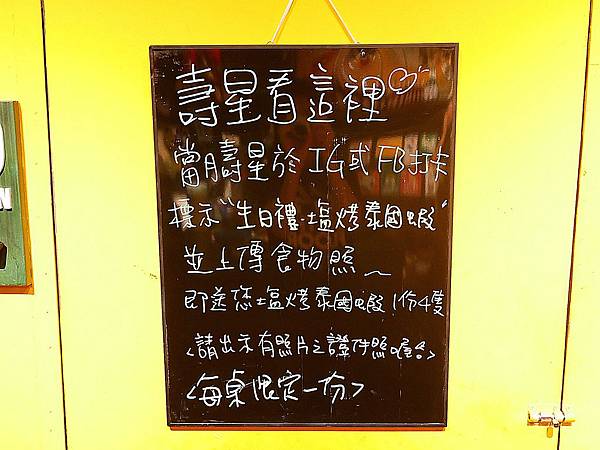 壽星看這裡
當月壽星於IG或FB打卡
標示"生日禮-塩烤泰國蝦"
並上傳食物照~
即送您塩烤泰國蝦1份4隻
<請出示有照片之證件照喔!>
<每桌限定一份>
N